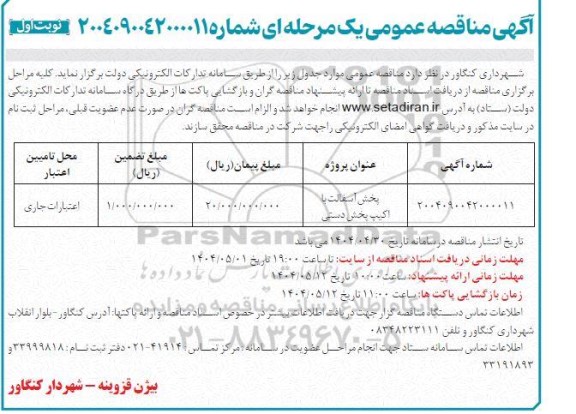 آگهی مناقصه عمومی یک مرحله ای شماره ۲۰۰۴۰۹۰۰۴۲۰۰۰۰۱۱
نوبت اول
شهرداری کنگاور در نظر دارد مناقصه عمومی موارد جدول زیر را از طریق سامانه تدارکات الکترونیکی دولت برگزار نماید. کلیه مراحل
برگزاری مناقصه از دریافت اسناد مناقصه تا ارائه پیشنهاد مناقصه گران و بازگشایی پاکت ها از طریق درگاه سامانه تدارکات الکترونیکی
دولت (ستاد) به آدرس www.setadiran.ir انجام خواهد شد و الزام است مناقصه گران در صورت عدم عضویت قبلی، مراحل ثبت نام
در سایت مذکور و دریافت گواهی امضای الکترونیکی را جهت شرکت در مناقصه محقق سازند.
شماره آگهی
عنوان پروژه
مبلغ پیمان(ریال)
مبلغ تضمین (ریال)
محل تامین اعتبار
۲۰۰۴۰۹۰۰۴۲۰۰۰۰۱۱
پخش آسفالت با اکیپ پخش دستی
۲۰/۰۰۰/۰۰۰/۰۰۰
۱/۰۰۰/۰۰۰/۰۰۰
اعتبارات جاری
تاریخ انتشار مناقصه در سامانه تاریخ ۱۴۰۴/۰۴/۳۰ می باشد
مهلت زمانی دریافت اسناد مناقصه از سایت: تا ساعت ۱۹:۰۰ تاریخ ۱۴۰۴/۰۵/۰۱
مهلت زمانی ارائه پیشنهاد: ساعت ۱۰:۰۰ تاریخ ۱۴۰۴/۰۵/۱۲
زمان بازگشایی پاکت ها: ساعت ۱۱:۰۰ تاریخ ۱۴۰۴/۰۵/۱۲
اطلاعات تماس دستگاه مناقصه گزار جهت دریافت اطلاعات بیشتر در خصوص اسناد مناقصه و ارائه پاکتها: آدرس کنگاور-بلوار انقلاب
شهرداری کنگاور و تلفن ۰۸۳۴۸۲۲۳۱۱۱
اطلاعات تماس سامانه ستاد جهت انجام مراحل عضویت در سامانه: مرکز تماس: ۴۱۹۱۴-۰۲۱ دفتر ثبت نام: ۳۳۹۹۹۸۱۸ و
۳۳۱۹۱۸۹۳
بیژن قزوینه - شهردار کنگاور
ParsNamadData
۰۲۱-۸۸۳۴۹۶۷۰-۵